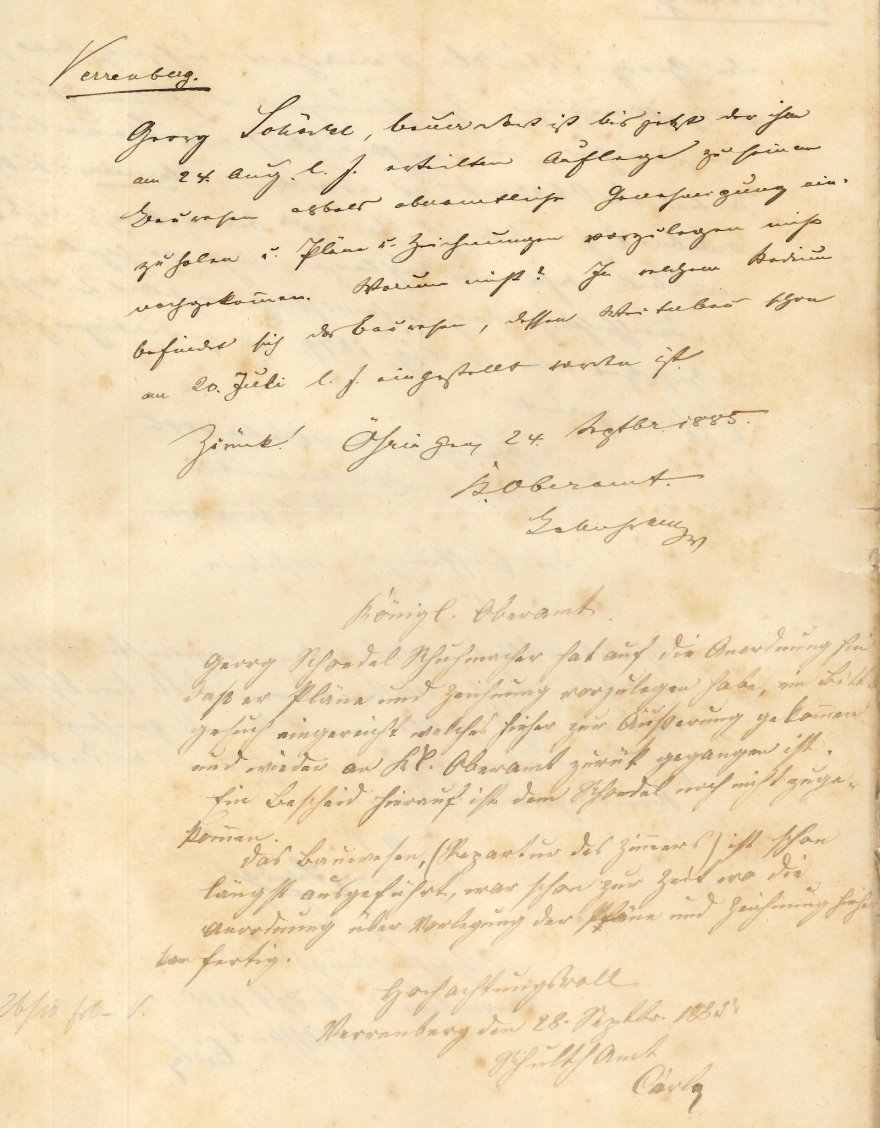 Verrenberg.
Georg Schoedel, Bauer dort ist bis jetzt der ihm
am 24. Aug. l. J. erteilten Auflage zu seinem
Bauwesen alsbald oberamtliche Genehmigung ein-
zuholen u. Pläne u. Zeichnungen vorzulegen nicht
nachgekommen. Warum nicht? In welchem Stadium
befindet sich das Bauwesen, dessen Weiterbau schon
am 20. Juli l. J. eingestellt worden ist.
Zurück! Öhringen, 24. Septbr 1885.
K. Oberamt.
Königl. Oberamt
Georg Schoedel Schuhmacher hat auf die Anordnung hin
daß er Pläne und Zeichnung vorzulegen habe, ein Bitt
gesuch eingereicht welches hieher zur Äußerung gekommen
und wieder an Kl. Oberamt zurük gegangen ist.
Ein Bescheid hierauf ist dem Schoedel noch nicht zuge-
kommen.
Das Bauwesen, (Reparatur des Zimmers) ist schon
längst ausgeführt, war schon zur Zeit wo die
Anordnung über Vorlegung der Pläne und Zeichnung hieher
kam fertig.
Hochachtungsvoll
Verrenberg den 28. Septbr. 1885.
Schulth Amt